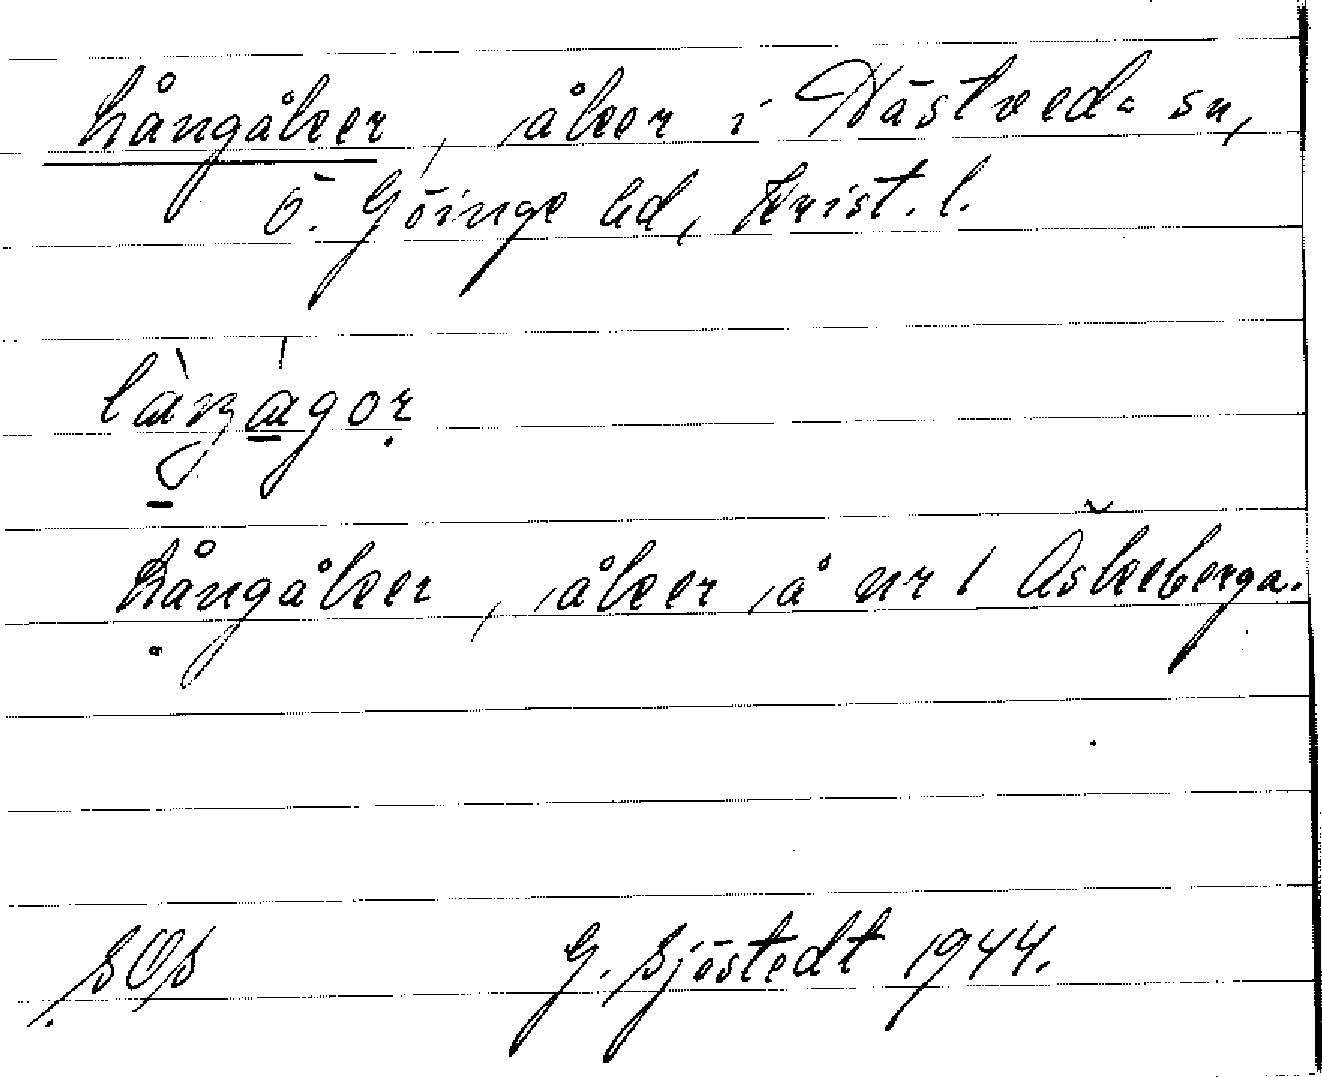 Långåker, åker i Hästveda sn,
Ö. Göinge hd, Krist. l.
Långåker, åker å nr 1 Askeberga.
SOS G. Sjöstedt 1944.